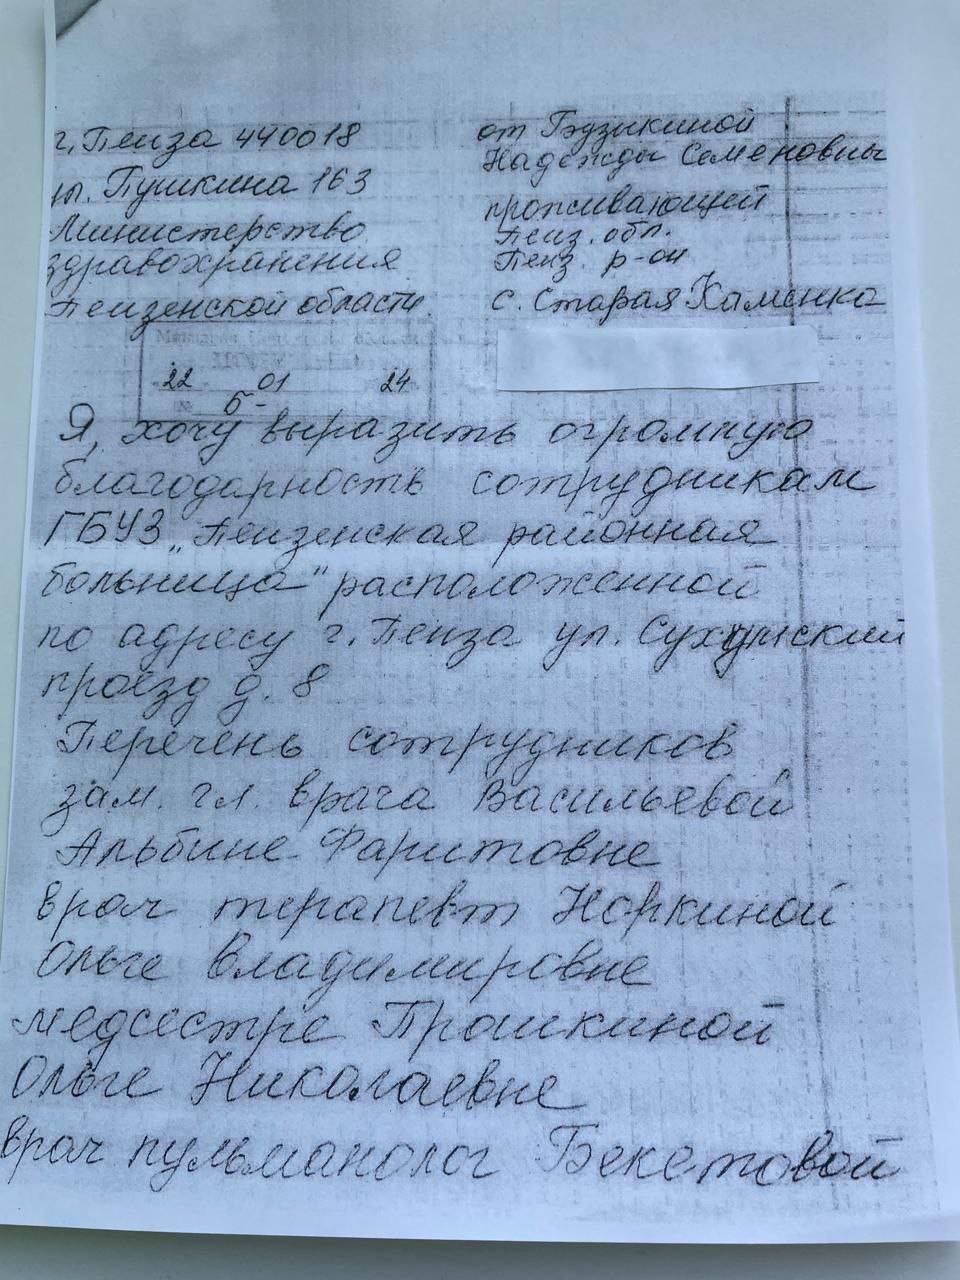 г. Пенза 440018
ул. Пушкина 163
Министерство
здравохранения
Пензенской области
от Бузыкиной
Надежды Семеновны
проживающей
Пенз. обл.
Пенз. р-он
с. Старая Каменка
22 01 24
№ б-
Я, хочу выразить огромную
благодарность сотрудникам
ГБУЗ „Пензенская районная
больница" расположенной
по адресу г. Пенза ул. Сухумский
проезд д. 8
Перечень сотрудников
зам. гл. врача Васильевой
Альбине Фаритовне
врач терапевт Норкиной
Ольге Владимировне
медсестре Прошкиной
Ольге Николаевне
врач пульманолог Бекетовой